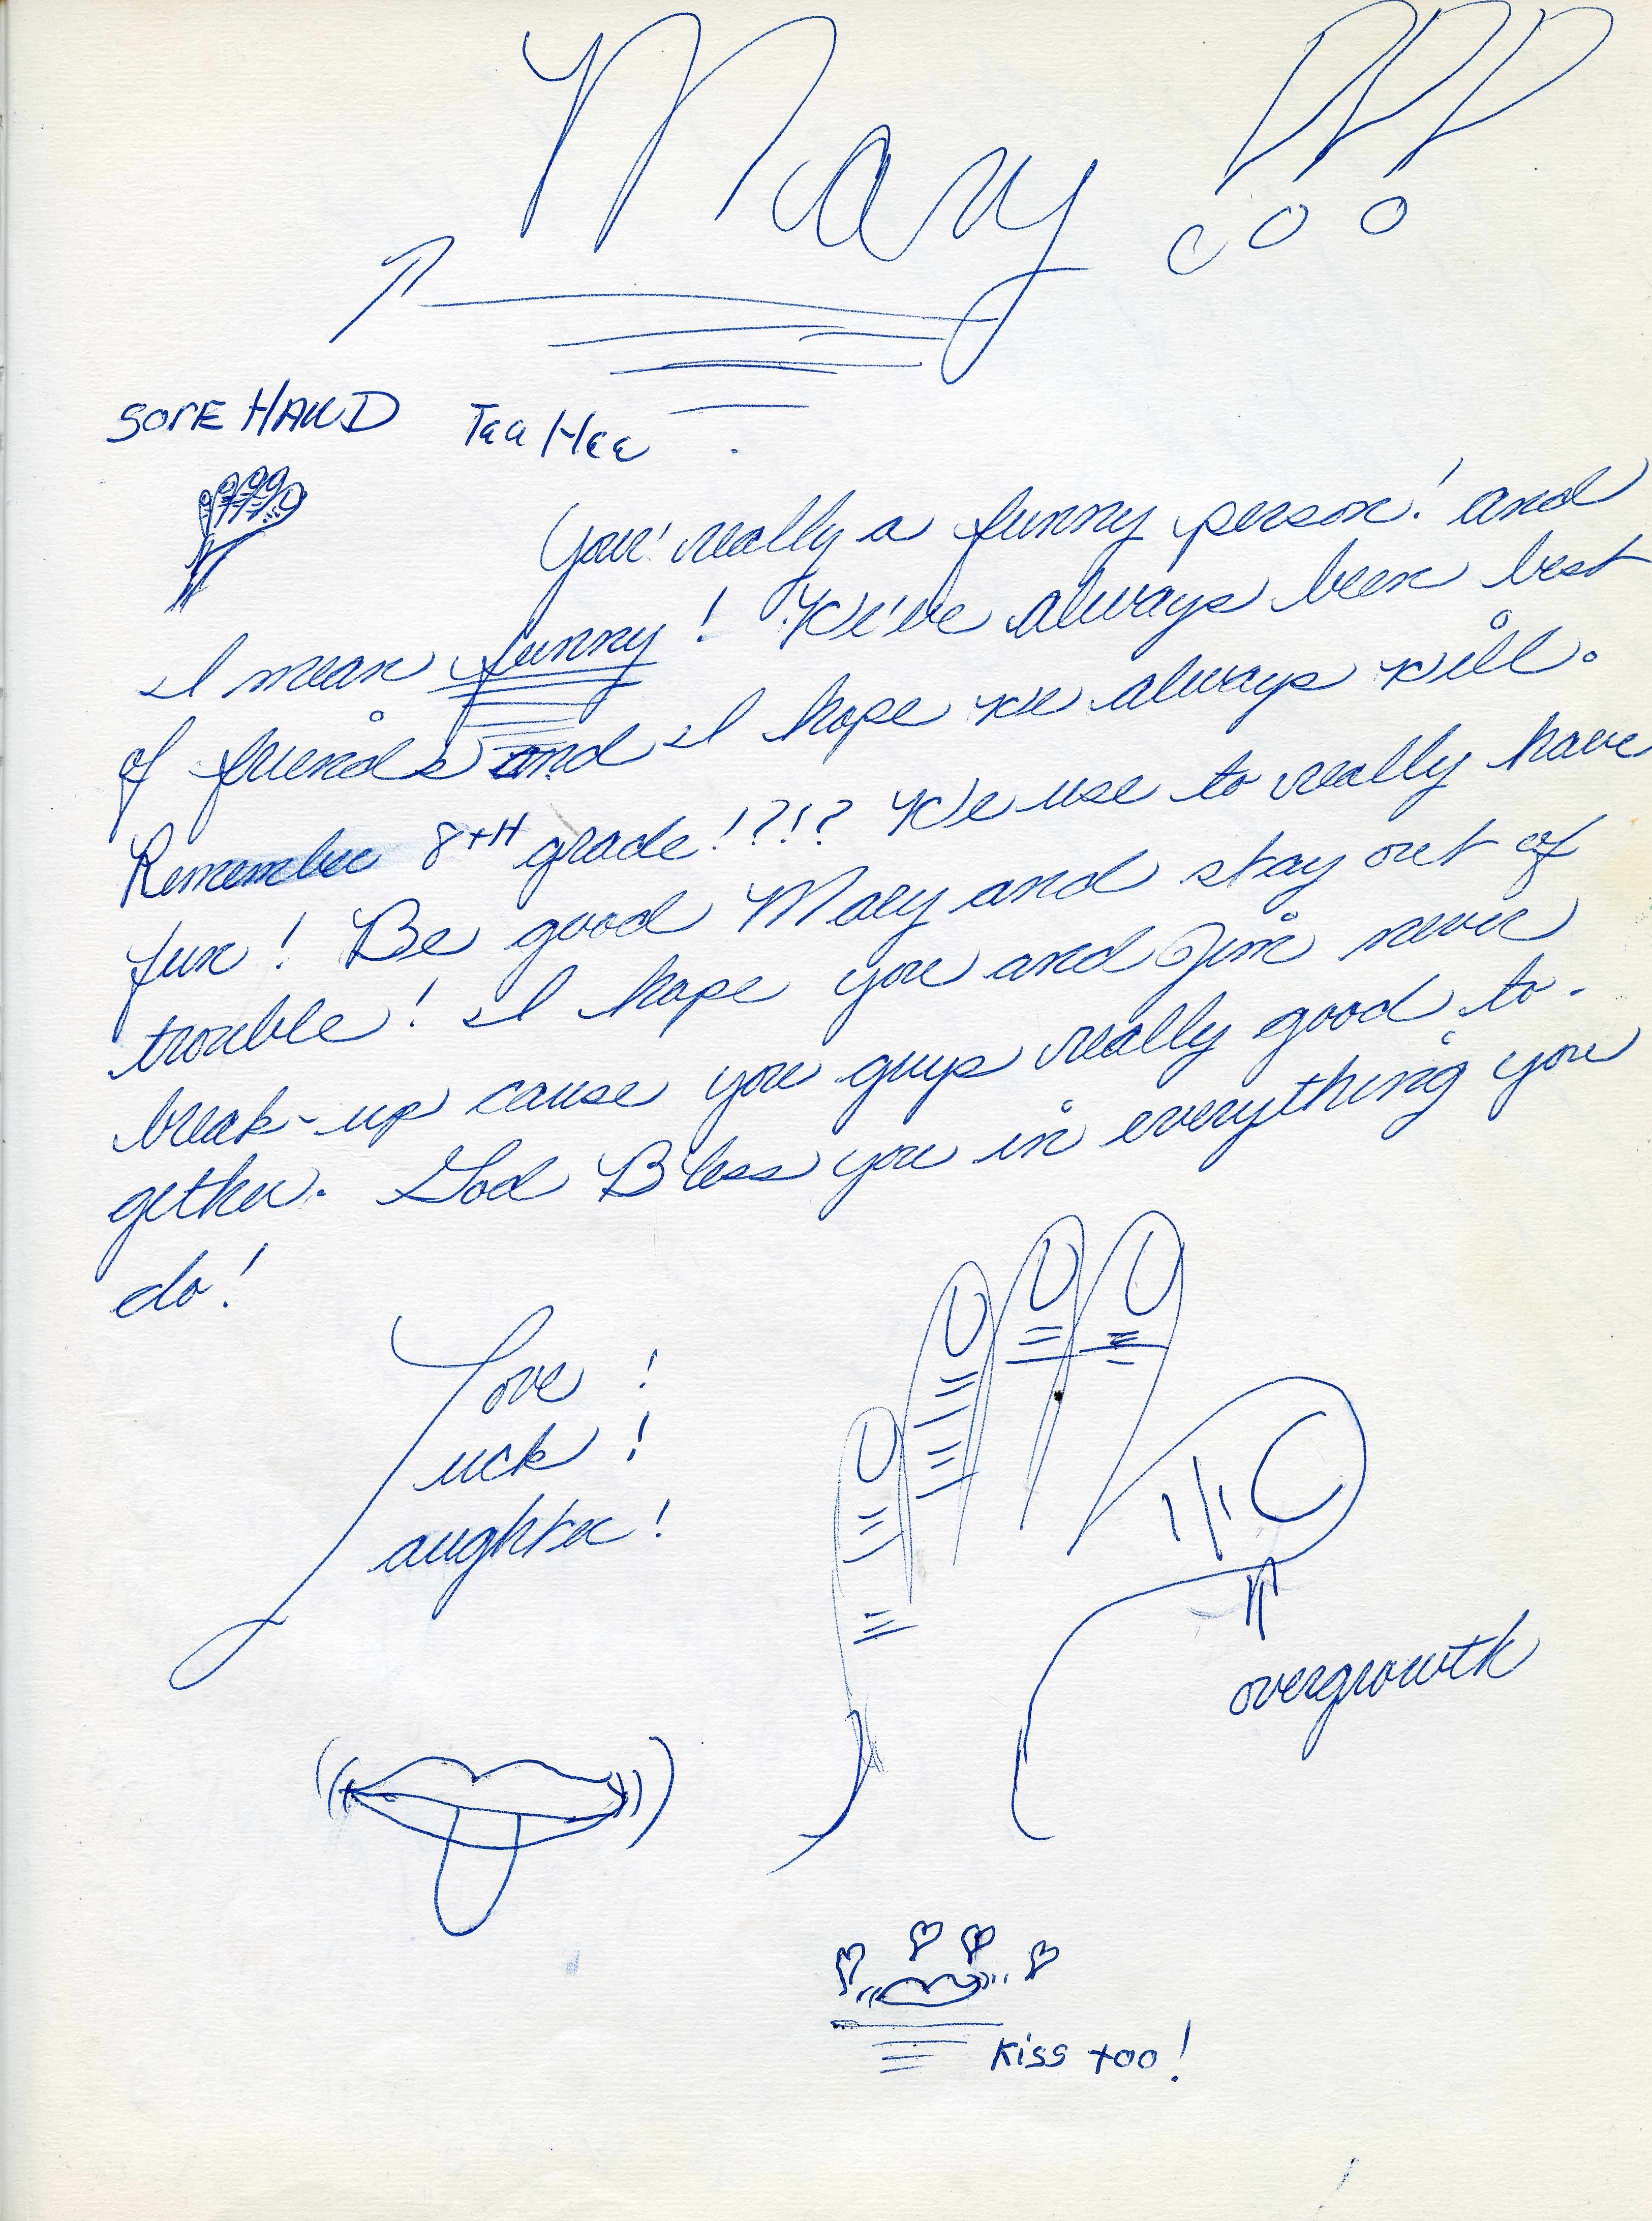 Mary !!!
SOrE HAND Tee Hee
You' really a funny person! and
I mean funny! We've always been best
of friends and I hope we always will.
Remember 8TH grade!?!? We use to really have
fun! Be good Mary and stay out of
trouble! I hope you and Jim never
break-up cause you guys really good to-
gether. God Bless you in everything you
do!
Love !
uck !
aughter!
overgrowth
Kiss too!